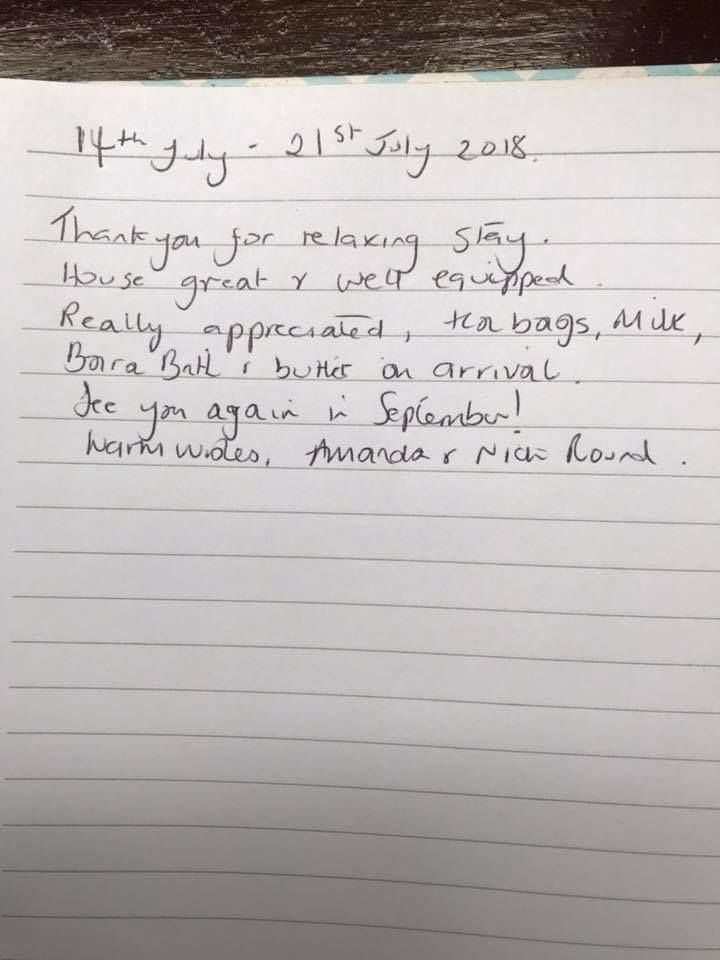 14th July - 21st July 2018.
Thankyou for relaxing stay.
House great & well equipped.
Really appreciated, tea bags, Milk,
Bara Brith & butter on arrival.
See you again in September!
Warm wishes, Amanda & Nick Round.